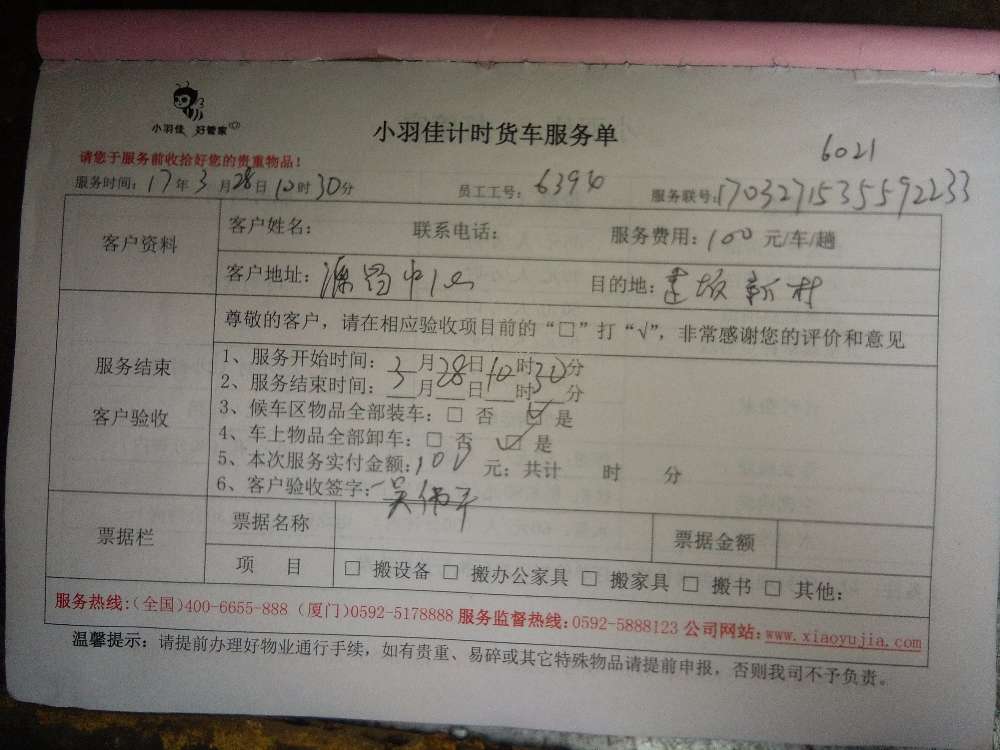 小羽佳 好管家
小羽佳计时货车服务单
6021
请您于服务前收拾好您的贵重物品！
服务时间：17年3月28日10时30分 员工工号：6396 服务联号：1703271535592233
客户资料
客户姓名： 联系电话： 服务费用：100 元/车/趟
客户地址：源昌中心 目的地：莲坂新村
服务结束
客户验收
尊敬的客户，请在相应验收项目前的“□”打“√”，非常感谢您的评价和意见
1、服务开始时间：3月28日10时30分
2、服务结束时间：___月___日___时___分
3、候车区物品全部装车：□ 否 ☑ 是
4、车上物品全部卸车：□ 否 ☑ 是
5、本次服务实付金额：100 元；共计 时 分
6、客户验收签字：吴
票据栏
票据名称 票据金额
项 目 □ 搬设备 □ 搬办公家具 □ 搬家具 □ 搬书 □ 其他：
服务热线：（全国）400-6655-888（厦门）0592-5178888 服务监督热线：0592-5888123 公司网站：www.xiaoyujia.com
温馨提示：请提前办理好物业通行手续，如有贵重、易碎或其它特殊物品请提前申报，否则我司不予负责。